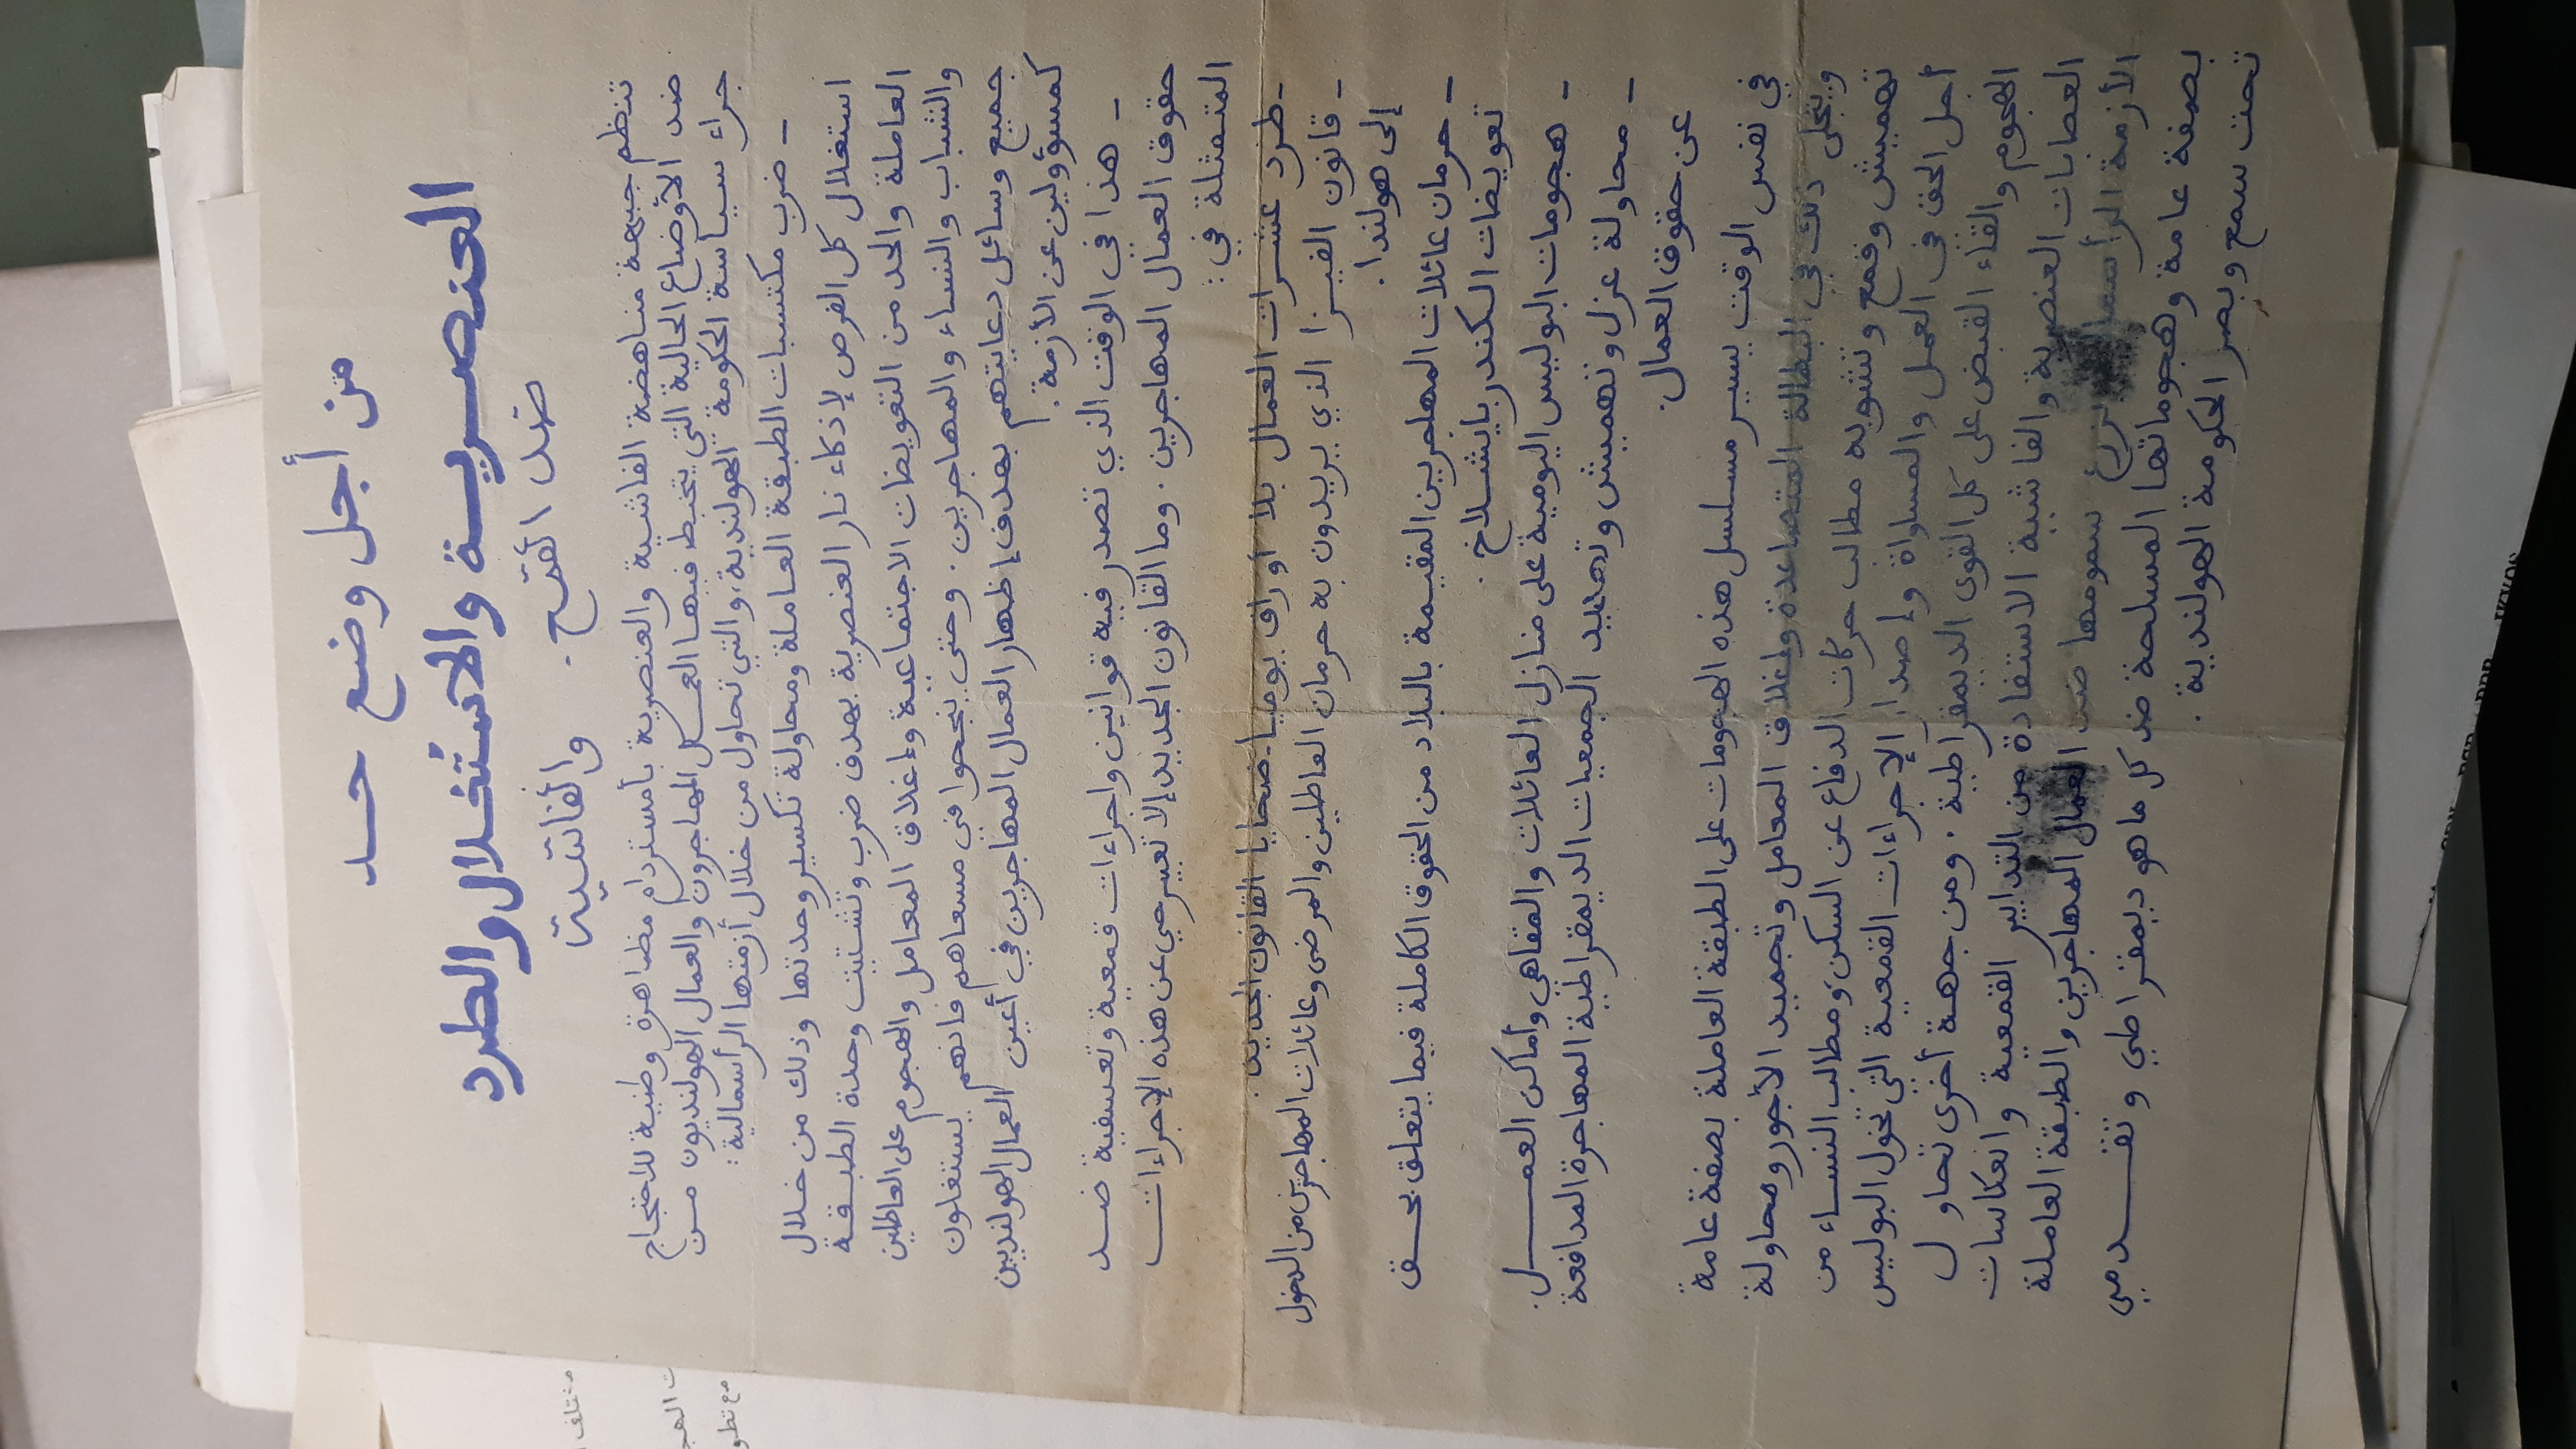 من أجل وضع حد
العنصرية والاستغلال والطرد
ضد القمع والفاشية
تنظم جبهة مناهضة الفاشية والعنصرية بأمستردام مظاهرة وطنية للاحتجاج
ضد الأوضاع الحالية التي يتخبط فيها العمال المهاجرون والعمال الهولنديون من
جراء سياسة الحكومة الهولندية، والتي تحاول من خلال أزمتها الرأسمالية :
- ضرب مكتسبات الطبقة العاملة ومحاولة تكسير وحدتها وذلك من خلال
استغلال كل الفرص لإذكاء نار العنصرية بهدف ضرب وتشتيت وحدة الطبقة
العاملة والحد من التعويضات الاجتماعية وإغلاق المعامل والهجوم على العاطلين
والشباب والنساء والمهاجرين . وحتى ينجحوا في مسعاهم فانهم يستغلون
جميع وسائل دعايتهم بهدف إظهار العمال المهاجرين في أعين العمال الهولنديين
كمسؤولين عن الأزمة .
- هذا في الوقت الذي تصدر فيه قوانين واجراءات قمعية وتعسفية ضد
حقوق العمال المهاجرين . وما القانون الجديد إلا تعبير حي عن هذه الإجراءات
المتمثلة في :
- طرد عشرات العمال بلا أوراق يوميا ضحايا القانون الجديد.
- قانون الفيزا الذي يريدون به حرمان العاطلين والمرضى وعائلات المهاجرين من الدخول
إلى هولندا .
- حرمان عائلات المهاجرين المقيمة بالبلاد من الحقوق الكاملة فيما يتعلق بحق
تعويضات الكندربايشلاخ .
- هجومات البوليس اليومية على منازل العائلات والمقاهي وأماكن العمل .
- محاولة عزل وتهميش وتهديد الجمعيات الديمقراطية المهاجرة المدافعة
عن حقوق العمال .
في نفس الوقت يسير مسلسل هذه الهجومات على الطبقة العاملة بصفة عامة
ويتجلى ذلك في البطالة المتصاعدة وإغلاق المعامل وتجميد الأجور ومحاولة
تهميش وقمع وتشويه مطالب حركات الدفاع عن السكن ومطالب النساء من
أجل الحق في العمل والمساواة وإصدار الإجراءات القمعية التي تخول البوليس
الهجوم والقاء القبض على كل القوى الديمقراطية . ومن جهة أخرى تحاول
العصابات العنصرية والفاشية الاستفادة من التدابير القمعية وانعكاسات
الأزمة الرأسمالية بزرع سمومها ضد العمال المهاجرين والطبقة العاملة
بصفة عامة وهجوماتها المسلحة ضد كل ما هو ديمقراطي وتقدمي
تحت سمع وبصر الحكومة الهولندية .
مختلف
مع تطو